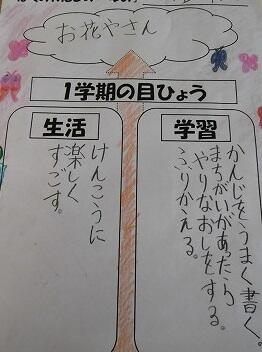 お花やさん
1学期の目ひょう
学習
かんじをうまく書く。
まちがいがあったら
やりなおしをする。
ふりかえる。
生活
けんこうに
楽しく
すごす。